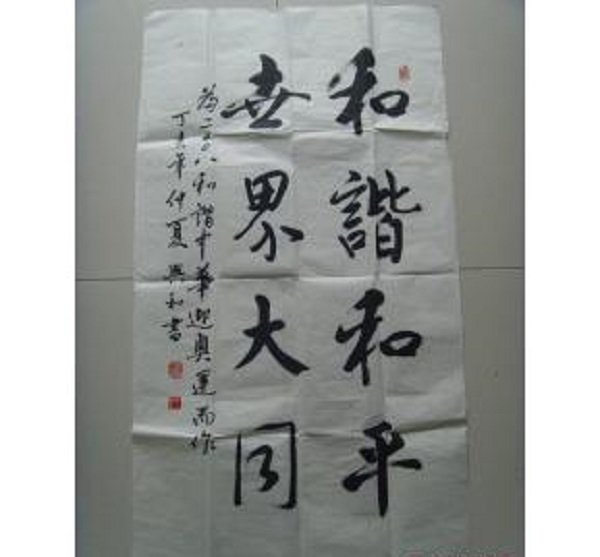 和諧和平
世界大同
為二〇〇八和諧中華迎奧運而作
丁亥年仲夏 興和書